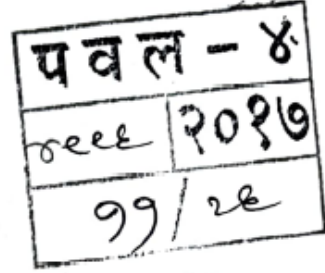 पवल - ४
४९९६ २०१७
११ / २६